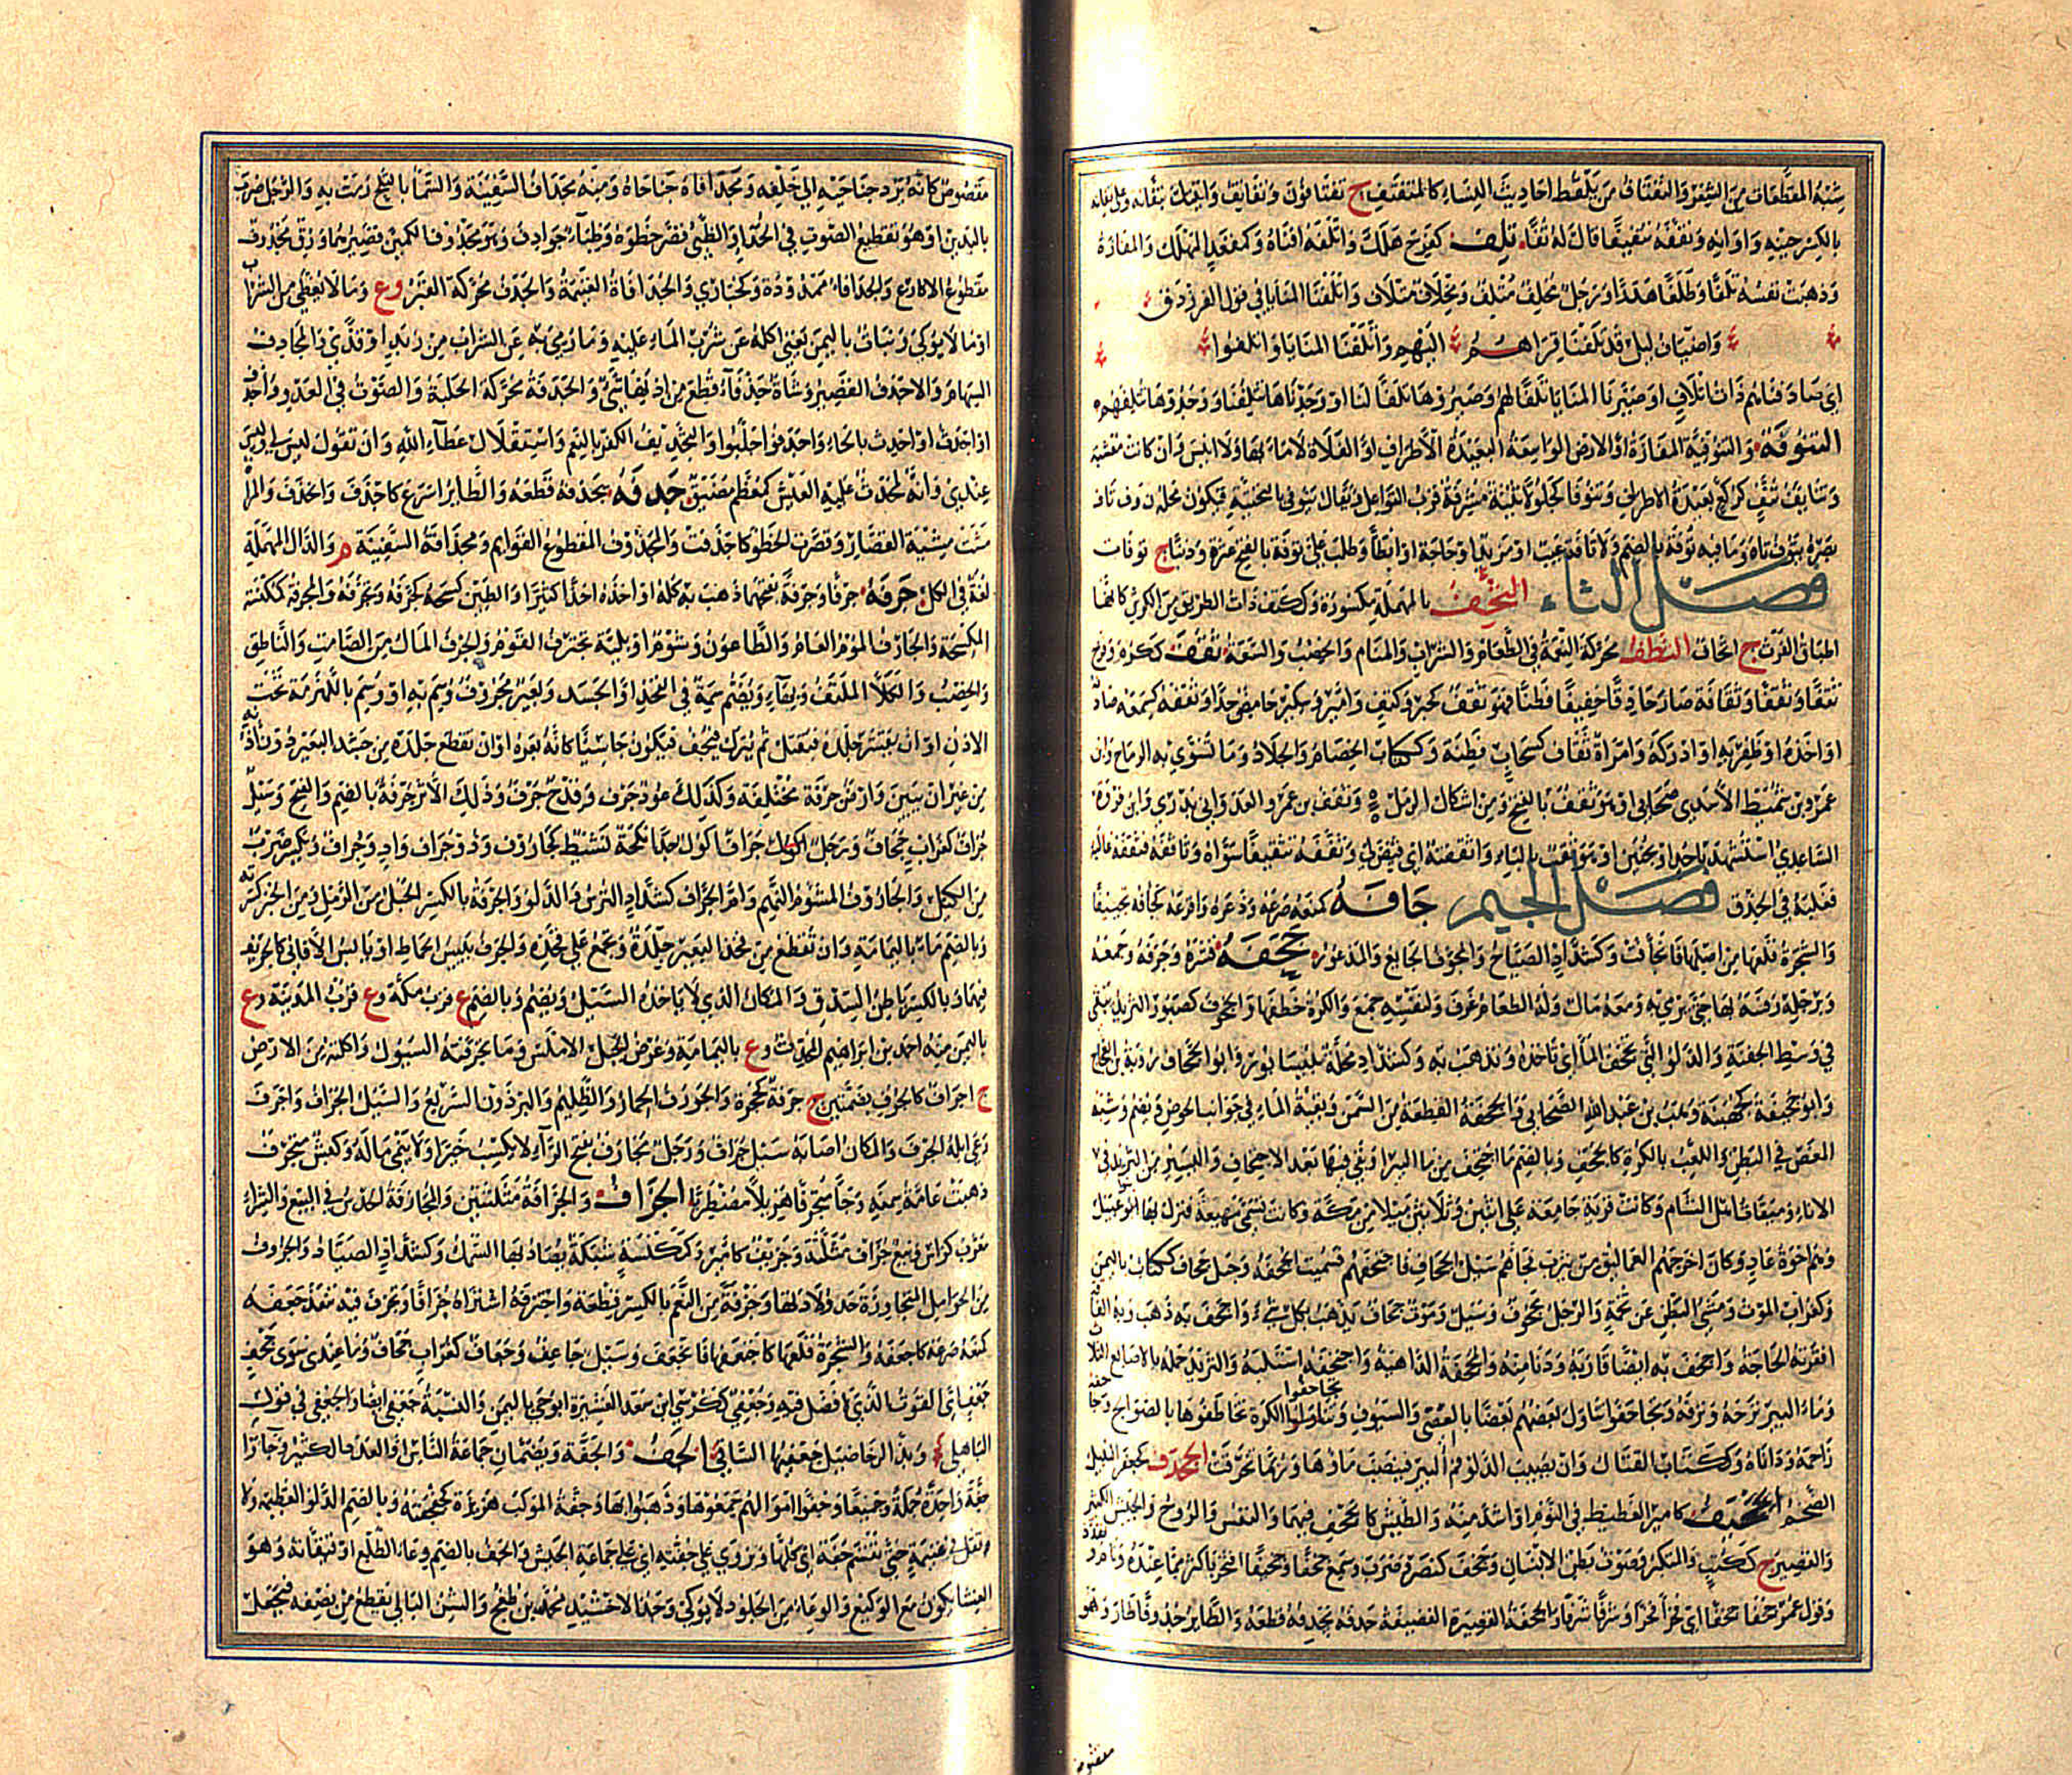 شبه المقطعات من الشعر والتفتاف من يلقط احاديث النساء كالمتفتف ج تفتافون وتفاتف
بالكسر حينه واوانه وتففه تتفيفا قال له تفا تلف كفرح هلك واتلفه افناه وكمقعد المهلك والمفازة
وذهبت نفسه تلفا وطلفا هدرا ورجل مخلف متلف ومخلاف متلاف واتلفنا المنايا في قول الفرزدق
واضياف ليل قد تلفنا قراهم اليهم واتلفنا المنايا واتلفوا
اي صادفناهم ذات اتلاف او صيرنا المنايا تلفا لهم وصيروها تلفا لنا او وجدناها تتلفنا ووجدوها تتلفهم
التنوفة والتنوفية المفازة او الارض الواسعة البعيدة الاطراف او الفلاة لا ماء بها ولا انيس وان كانت معشبة
بعيدة الاطراف وتنوفا كجلولا ثنية مشرفة قرب القواعل ويقال ينوفي بالتحتية فيكون محله ن وف تاف
بصره يتوف تاه وما فيه توفة بالضم ولا تافة عيب او مزيد او حاجة او ابطاء وطلب علي توفة بالفتح عثرة وذنبا ج توفات
فصل الثاء الثحف بالمهملة مكسورة وككتف ذات الطرائق من الكرش كانها
اطباق الفرث ج اثحاف الثطف محركة النعمة في الطعام والشراب والمنام والخصب والسعة ثقف ككرم وفرح
ثقفا وثقفا وثقافة صار حاذقا خفيفا فطنا فهو ثقف كحبر وكتف وامير وسكيت حامض جدا وثقفه كسمعه صادفه
او اخذه او ظفر به او ادركه وامراة ثقاف كسحاب فطنة وككتاب الخصام والجلاد وما تسوي به الرماح وابن
عمرو بن شميط الاسدي صحابي او هو ثقف بالفتح ومن اشكال الرمل وثقف بن عمرو العدواني بدري وابن فروة
الساعدي استشهد باحد او بخيبر او هو ثقب بالباء واثقفته اي قيض لي وثقفه تثقيفا سواه وثاقفه فثقفه غالبه
فغلبه في الحذق فصل الجيم جافه كمنعه صرعه وذعره وافزعه كجافه تجئيفا
والشجرة قلعها من اصلها فانجافت وكشداد الصياح والمجؤف الجايع والمذعور جحفه قشره وجرفه وجمعه
وبرجله رفسه بها حتى يرمي به ومعه مال وله الطعام غرف ولنفسه جمع والكرة خطفها والجحوف كصبور الثريد يبقى
في وسط الجفنة والدلو التي تجحف الماء اي تاخذه وتذهب به وكشداد محلة بنيسابور وابو الجحاف رؤبة بن العجاج
وابو جحيفة كجهينة وهب بن عبد الله الصحابي والجحفة القطعة من السمن وبقية الماء في جوانب الحوض ويضم وشبه
المغص في البطن واللعب بالكرة كالجحف وبالضم ما اجتحف من ماء البئر او بقي فيها بعد الاجتحاف واليسير من الثريد في
الاناء وميقات اهل الشام وكانت قرية جامعة على اثنين وثلاثين ميلا من مكة وكانت تسمى مهيعة فنزل بها بنو عبيل
وهم اخوة عاد وكان اخرجهم العماليق من يثرب فجاهم سيل الجحاف فاجتحفهم فسميت الجحفة وجبل جحاف ككتاب باليمن
وكغراب الموت ومشي البطن عن تخمة والرجل مجحوف وسيل وموت جحاف يذهب بكل شيء واجحف به ذهب وبه الفاقة
افقرته الحاجة واجحف به ايضا قاربه ودنا منه والمجحفة الداهية واجتحفه استلبه والثريد حمله بالاصابع الثلاث
وماء البئر نزحه ونزفه وتجاحفوا تناول بعضهم بعضا بالعصي والسيوف وتجاحفوا الكرة تخاطفوها بالصوالج وجاحفه
زاحمه وداناه وككتاب القتال وان يصيب الدلو فم البير فينصب ماؤها وربما تخرقت الجخدف كجعفر النبيل
الضخم الجخيف كامير الغطيط في النوم او اشد منه والطيش كالجخف فيهما والنفس والروح والجيش الكثير
والقصير ج ككتب والمتكبر وصوت بطن الانسان وجخف كنصر وضرب وسمع جخفا وجخيفا افتخر باكثر مما عنده ونام
وقول عمر جخفا جخفا اي فخرا فخرا وشرفا شرفا والجخفة القصيرة القضيفة جدفه يجدفه قطعه والطاير جدوفا طار وهو
مقصوص
مقصوص كانه يرد جناحيه الي خلفه ومجدافاه جناحاه ومنه مجداف السفينة والسماء بالثلج رمت به والرجل ضرب
باليدين او هو تقطيع الصوت في الحداء والظبي قصر خطوه وظباء جوادف وهو مجدوف الكمين قصيرهما وزق مجدوف
مقطوع الاكارع والجدافاء ممدودة وكحباري والجدافاة الغنيمة والجدف محركة القبر وع وما لا يغطي من الشراب
او ما لا يوكي ونبات باليمن يغني اكله عن شرب الماء عليه وما رمي به عن الشراب من زبد او قذي والمجادف
السهام والاجدف القصير وشاة جدفاء قطع من اذنها شيء والجدفة محركة الجلبة والصوت في العدو واجدف
او اجدث او احدث بالحاء واجدفوا اجلبوا والتجديف الكفر بالنعم واستقلال عطاء الله وان تقول ليس لي وليس
عندي وانه لمجدف عليه العيش كمعظم مضيق جذفه يجذفه قطعه والطاير اسرع كاجذف وانجذف والمراة
مشت مشية القصار وقصرت الخطو كاجذفت والمجذوف المقطوع القوايم ومجذافة السفينة م والدال المهملة
لغة في الكل جرفه جرفا وجرفة بفتحهما ذهب به كله او اخذه اخذا كثيرا والطين كسحه كجرفه وتجرفه والمجرفة ككنسة
المكسحة والجارف الموت العام والطاعون وشؤم او بلية تجترف القوم والجرف المال من الصامت والناطق
والخصب والكلا الملتف وبهاء ويضم سمة في الفخذ او الجسد وبعير مجروف وسم به او وسم باللهزمة تحت
الاذن او ان يقشر جلده فيفتل ثم يترك فيجف فيكون جاسيا كانه بعرة او ان تقطع جلدة من جسد البعير دون اذنه
من غير ان تبين وارض جرفة مختلفة وكذلك عود جرف وقدح جرف وذلك الاثر جرفة بالضم والفتح وسيل
جراف كغراب جحاف ورجل جراف اكول جدا نكحة نشيط كجاروف وذو جراف واد وجراف ويكسر ضرب
من الكيل والجاروف المشؤم النهم وام الجراف كشداد الترس والدلو والجرفة بالكسر الحبل من الرمل ومن الخبز كسرته
وبالضم ماء باليمامة وان تقطع من فخذ البعير جلدة وتجمع على فخذه والجرف يبيس الحماط او يابس الافاني كالجريف
فيهما وبالكسر باطن الشدق والمكان الذي لا ياخذه السيل ويضم وبالضم ع قرب مكة وع قرب المدينة وع
باليمن منه احمد بن ابراهيم المحدث وع باليمامة وعرض الجبل الاملس وما تجرفته السيول واكلته من الارض
ج اجراف كالجرف بضمتين ج جرفة كجحرة والجورف الحمار والظليم والبرذون السريع والسيل الجراف واجرف
رعى ابله الجرف والمكان اصابه سيل جراف ورجل مجارف بفتح الراء لا يكسب خيرا ولا ينمي ماله وكبش متجرف
ذهبت عامة سمنه وجا متجرفا هزيلا مضطربا الجزاف والجزافة مثلثتين والمجازفة الحدس في البيع والشراء
معرب كزاف وبيع جزاف مثلثة وجزيف كامير وكمكنسة شبكة يصاد بها السمك وكشداد الصياد والجزوف
من الحوامل المتجاوزة حد ولادها وجزفة من النعم بالكسر قطعة واجتزفه اشتراه جزافا وتجزف فيه تنفذ جعفه
كمنعه صرعه كاجعفه والشجرة قلعها كاجتعفها فانجعفت وسيل جاعف وجعاف كغراب جحاف وما عنده سوى جعف
جعب اي القوت الذي لا فضل فيه وجعفي ككرسي ابن سعد العشيرة ابو حي باليمن والنسبة جعفي ايضا والجعفي في قول
الباهلي وبذ الرخاضيل جعفيها الساقي الجف والجفة ويضمان جماعة الناس او العدد الكثير وجاؤا
جفة واحدة جملة وجميعا وجفوا اموالهم جمعوها وذهبوا بها وجفة الموكب هزيزه كجفجفته وبالضم الدلو العظيمة ولا
نفل في غنيمة حتى تقسم جفة اي كلها ويروي علي جفته اي علي جماعة الجيش والجف بالضم وعاء الطلع او قيقاءته وهو
الغشاء يكون مع الوليع والوعاء من الجلود لا يوكي وجد الاخشيد محمد بن طغج والشن البالي يقطع من نصفه فيجعل